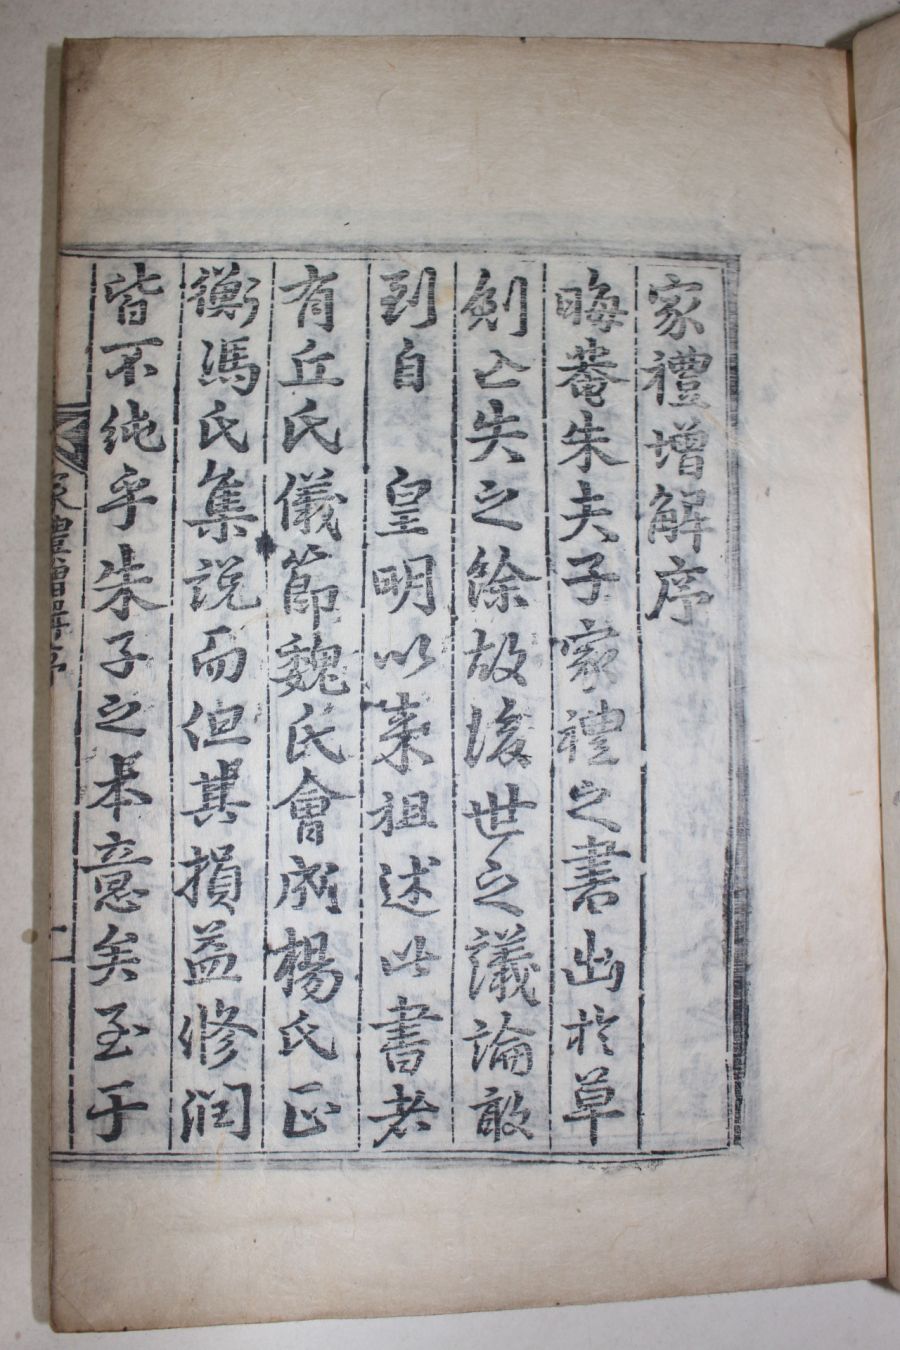 家禮增解序
晦菴朱夫子家禮之書出於草
創亡失之餘故後世之議論敢
到自 皇明以來祖述此書者
有丘氏儀節魏氏會成楊氏正
衡馮氏集說而但其損益修潤
皆不純乎朱子之本意矣至于
家禮增解序
一